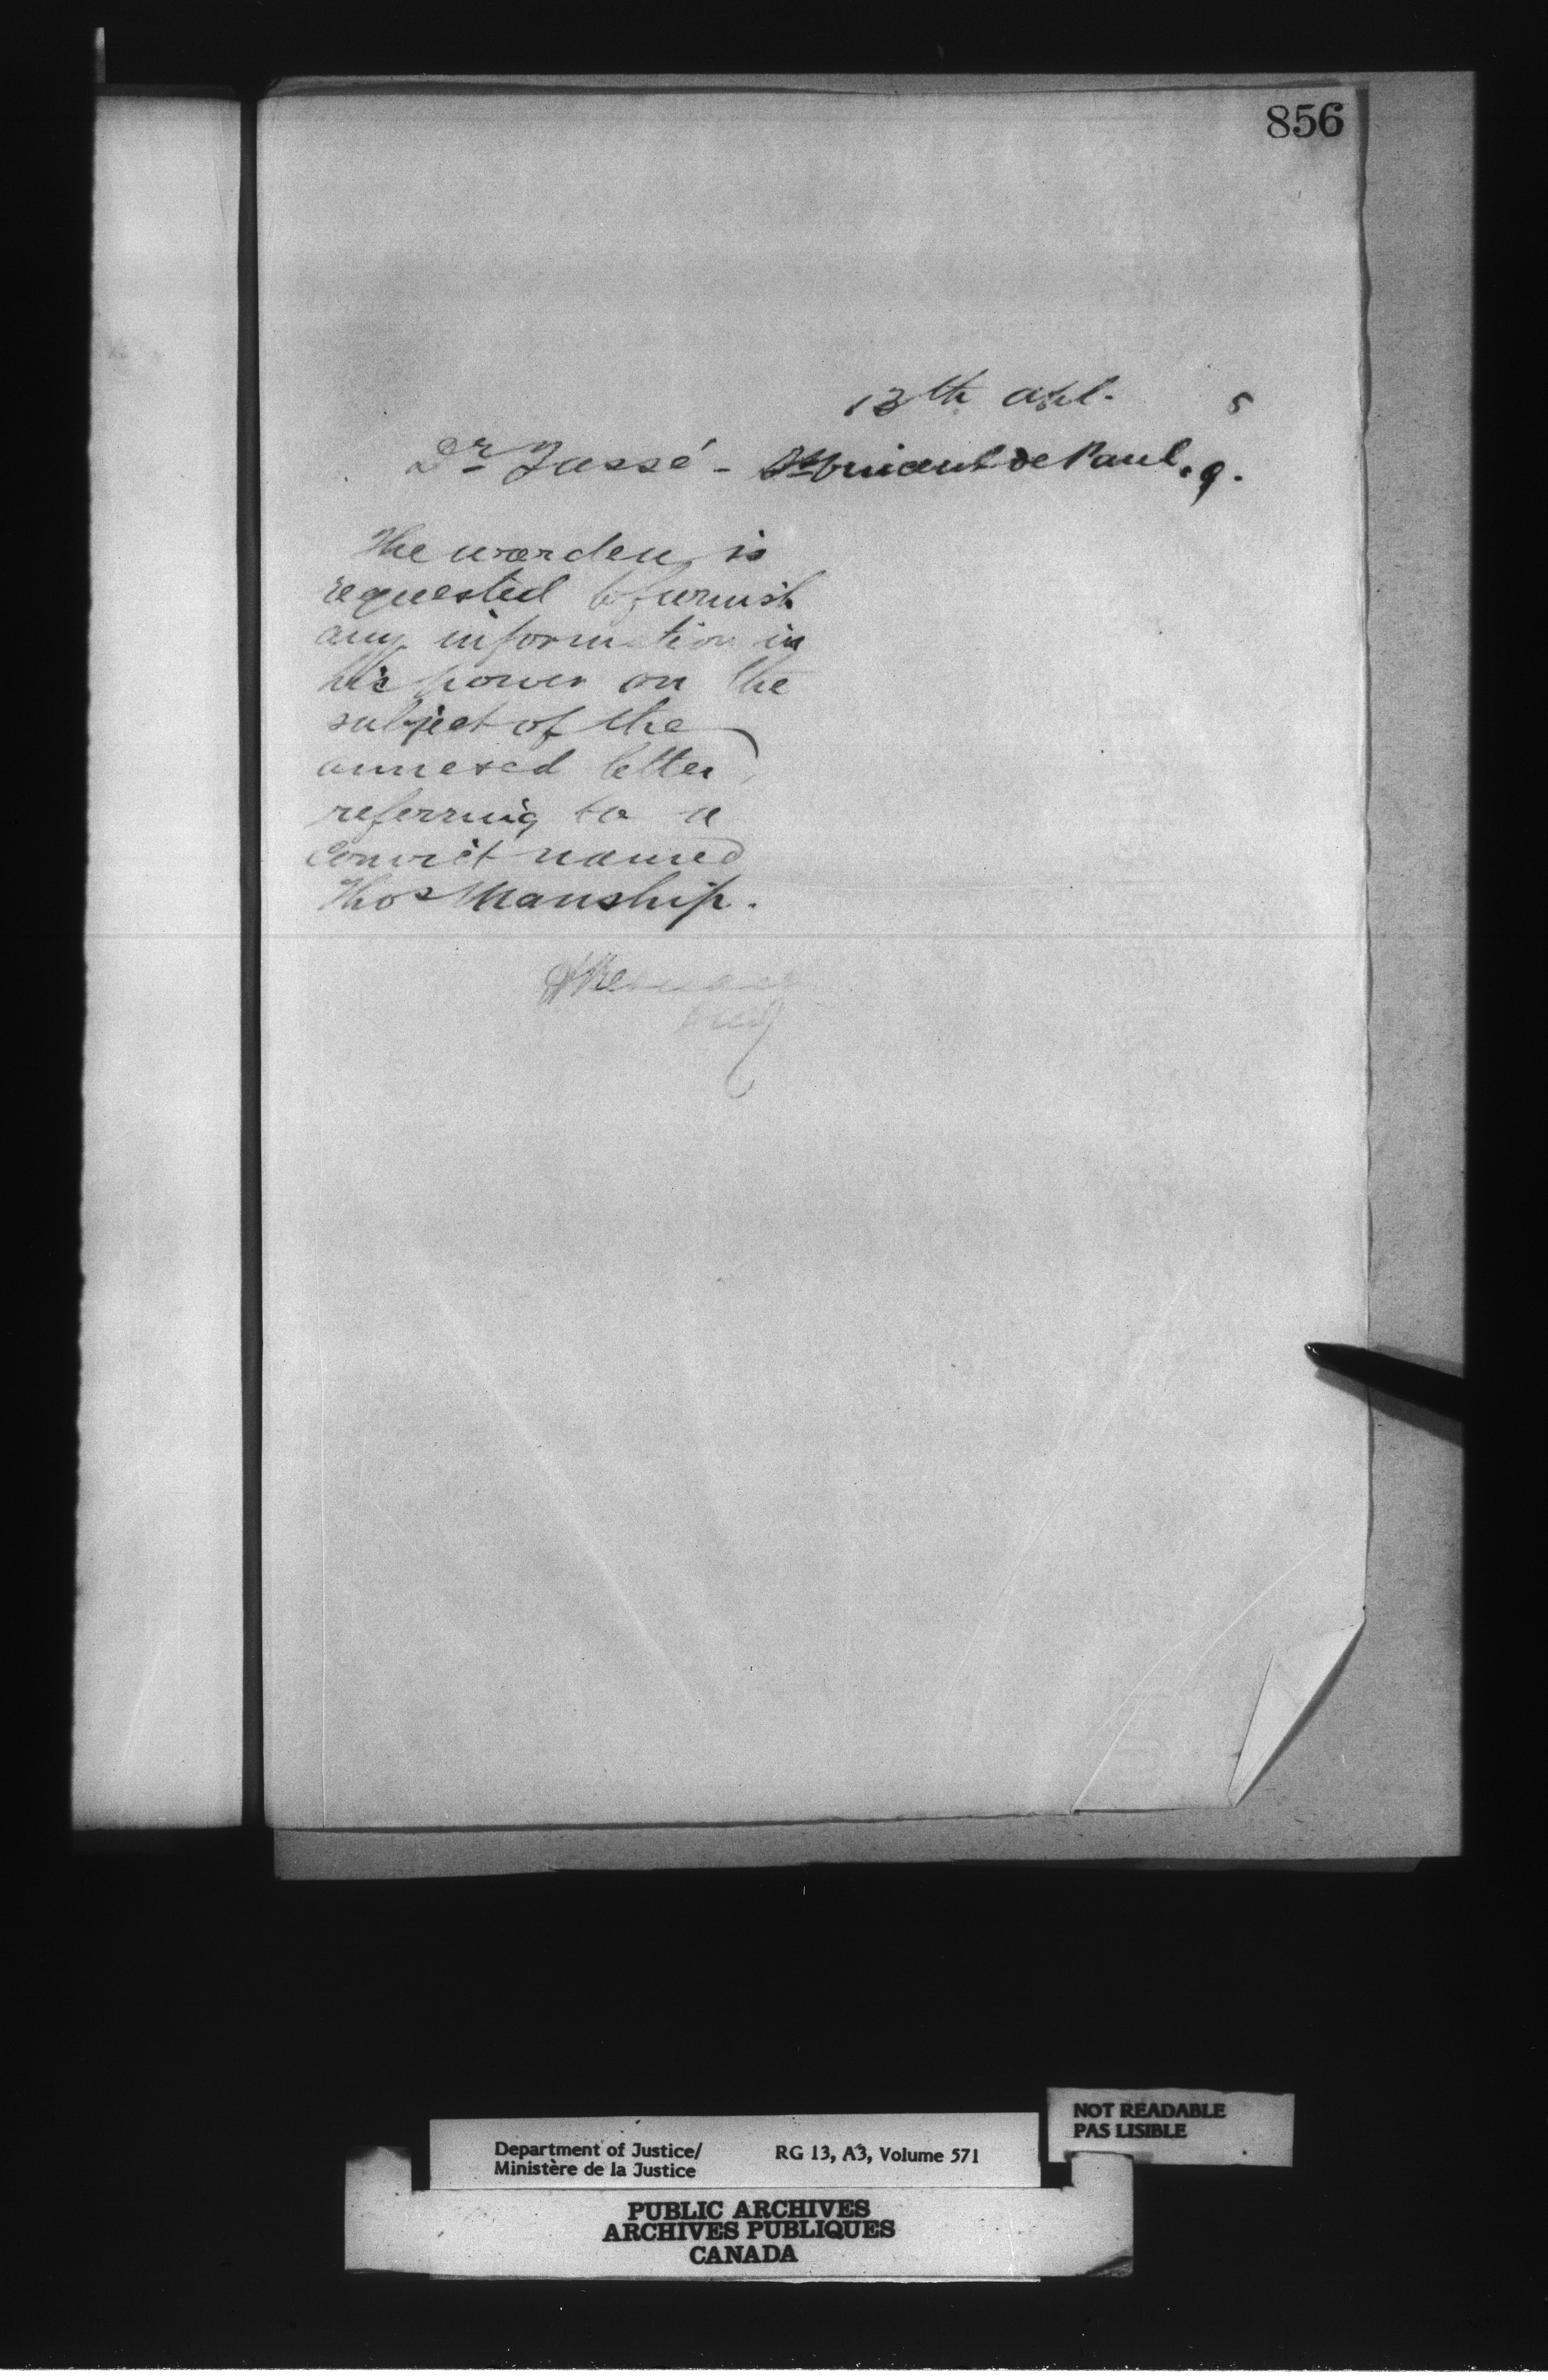 856
13th Apl. 5
Dr Jassé - St Vincent de Paul, Q.
The warden is
requested to furnish
any information in
his power on the
subject of the
annexed letter,
referring to a
convict named
Thos Manship.
NOT READABLE
PAS LISIBLE
Department of Justice/ RG 13, A3, Volume 571
Ministère de la Justice
PUBLIC ARCHIVES
ARCHIVES PUBLIQUES
CANADA